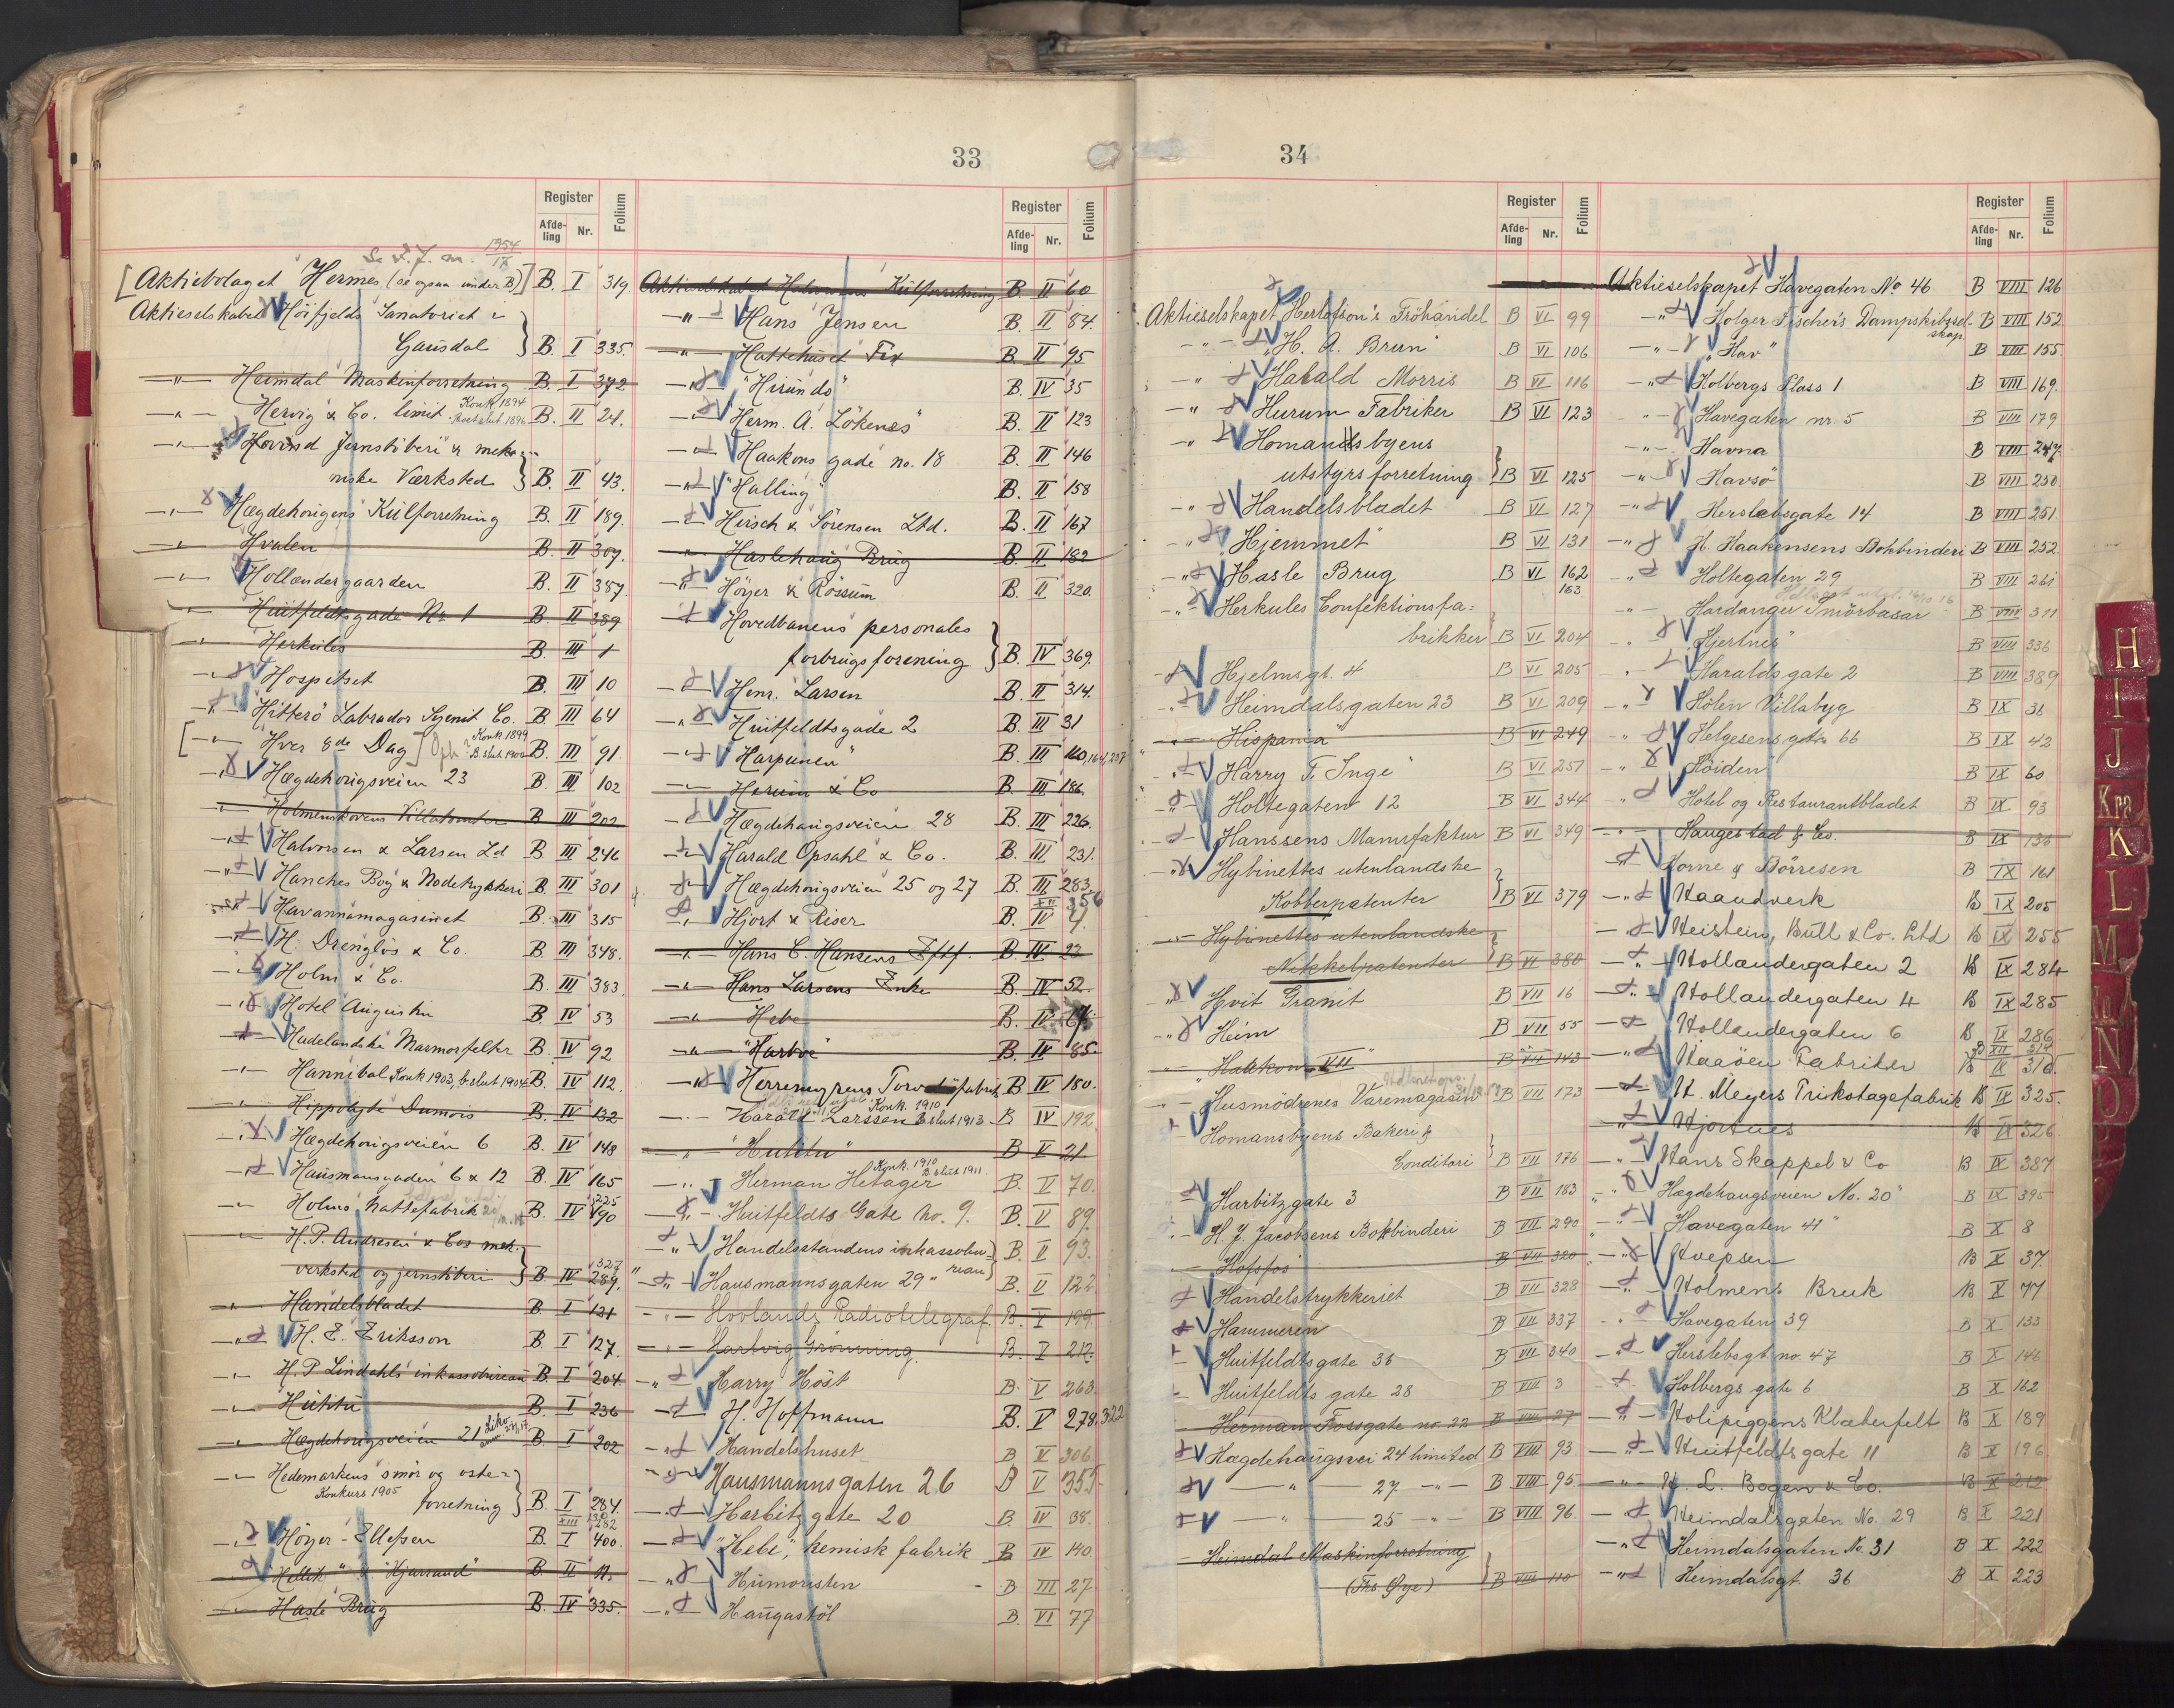 33
Register
Afde-
ling
Nr.
Folium
Register
Afde-
ling
Nr.
Folium
1954
Aktiebolaget Hermes (se ogsaa under B) B. I 319
Aktieselskabet Höifjelds Sanatoriet i
Gausdal B. I 335.
Heimdal Maskinforretning B. I 372
Hervig & Co. limit. Konk. 1894 B. II 21.
Hovind Jernstöberi & meka-
niske Værksted B. II 43.
Hægdehougens Kulforretning B. II 189.
Hvalen B. II 307.
Hollændergaarden B. II 387
Huitfeldtsgade Nr. 1 B. II 389
Herkules B. III 1
Hospitset B. III 10
Hitterö Labrador Syenit Co. B III 64
Hver 8de Dag Konk 1899 B. slut 1900 B. III 91
Hægdehougsveien 23 B. III 102
Holmenskovens Villatomter B III 202
Halvorsen & Larsen Ld B III 246
Hanches Bog & Nodetrykkeri B III 301
Havannamagasinet B. III 315
H. Drenglös & Co. B. III 348.
Holm & Co. B. III 383.
Hotel Augustin B. IV 53
Hadelandske Marmorfelter B. IV 92
Hannibal Konk 1903, b. slut 1904 B. IV 112.
Hippolyte Dumois B. IV 132
Hægdehougsveien 6 B. IV 148
Hausmansgaden 6 & 12 B. IV 165
Holms Hattefabrik B. IV 190
H. P. Andresen & Cos mek.
verksted og jernstöberi B IV 289.
Handelsbladet B. I 121
H. E. Eriksson B. I 127.
H. P Lindahls inkassobureau B. I 204
Huhtu B. I 236
Hægdehougsveien 21 B. I 202
Hedemarkens smör og oste-
Konkurs 1905 forretning B. I 284.
Höyer-Ellefsen B. I 400.
Hellik " & "Hjarrand" B. II 11.
Hasle Brug B. IV 335.
Aktieselskabet Kulforretning B. II 60
Hans Jensen B. II 84.
Hattehuset Fix B. II 95
"Hirundo" B. IV 35
Herm. A. Lökenes B. II 123
Haakons gade no. 18 B. II 146
"Halling" B. II 158
Hirsch & Sörensen Ltd. B. II 167
Haslehaug Brug B. II 182
Höyer & Rössum B. II 320.
Hovedbanens personales
forbrugsforening B. IV 369.
Henr. Larsen B. II 314.
Huitfeldtsgade 2 B. III 31
"Harpunen" B. III 160, 164, 257
Herum & Co B. III 186.
Hægdehaugsveien 28 B. III 226.
Harald Opsahl & Co. B. III 231.
Hægdehougsveien 25 og 27 B. III 283.
XII 356
Hjort & Riser B. IV 4.
Hans C. Hansens Eftf. B. IV. 22
Hans Larsens Enke B. IV 52.
Hebe B. IV 67.
"Hartvo" B. IV 85.
Herremyrens Torvströfabrik B IV 180.
Harald Larssen Konk. 1910 B. slut 1913 B IV 192.
"Huhtu" B V 21
Herman Hetager Konk. 1910 B. slut 1911. B. V 70.
Huitfeldts Gate No. 9. B. V 89.
Handelsstandens inkassobu-
reau B. V 93.
Hausmannsgaten 29 B. V 122.
Hovlands Radiotelegraf B. V 199.
Hartvig Grönning. B. V 212.
Harry Höst B. V 268.
H. Hoffmann B. V 278, 322
Handelshuset B V 306
Hausmannsgaten 26 B V 355
Harbitz gate 20 B. IV 38.
"Hebe", kemisk fabrik B IV 140
Humoristen B III 27
Haugastöl B. VI 77
34
Register
Afde-
ling
Nr.
Folium
Register
Afde-
ling
Nr.
Folium
Aktieselskapet Herlofson's Fröhandel B VI 99
"H. A. Brun" B VI 106
Harald Morris B VI 116
Hurum Fabriker B VI 123
Homandsbyens
utstyrsforretning B VI 125
Handelsbladet B VI 127
"Hjemmet" B VI 131
Hasle Brug B VI 162
163
Herkules Confektionsfa-
brikker B VI 204
Hjelmsgt. 4 B VI 205
Heimdalsgaten 23 B VI 209
"Hispania" B VI 249
"Harry T. Inge" B VI 251
Holtegaten 12 B VI 344
Hanssens Manufaktur B VI 349
Hybinettes utenlandske
Kobberpatenter B VI 379
Hybinettes utenlandske
Nikkelpatenter B VI 380
Hvit Granit B VII 16
Heim B VII 55
"Haakon VII" B VII 143
Husmödrenes Varemagasin B VII 173
Homansbyens Bakeri &
Conditori B VII 176
Harbitzgate 3 B VII 183
H. J. Jacobsens Bokbinderi B VII 290
Hofsfos B VII 320
Handelstrykkeriet B VII 328
Hammeren B VII 337
Huitfeldtsgate 36 B VII 340
Huitfeldts gate 28 B VIII 3
Herman Fossgate no. 22 B VIII 27
Hægdehaugsvei 24 limited B VIII 93
" 27 " B VIII 95
" 25 " B VIII 96
Heimdal Maskinforretning
(Ths. Øye) B VIII 110
Aktieselskapet Havegaten No 46 B VIII 126
Holger Fischer's Dampskibssel-
skap B VIII 152
"Hav" B VIII 155.
Holbergs Plass 1 B VIII 169.
Havegaten nr. 5 B VIII 179
Havna B VIII 247.
Havsö B VIII 250
Herslebsgate 14 B VIII 251
H. Haakensens Bokbinderi B VIII 252
Holtegaten 29 B VIII 261
Hardanger Smörbasar B VIII 311
"Hjertnes" B VIII 336
Haralds gate 2 B VIII 389
Hölen Villabyg B IX 31
Helgesens gate 66 B IX 42
"Höiden" B IX 60
Hotel og Restaurantbladet B IX 93
Haugestad & Co. B IX 136
Horne & Börresen B IX 161
Haandverk B IX 205
Heistein, Bull & Co. Ltd B IX 255
Hollændergaten 2 B IX 284
Hollændergaten 4 B IX 285
Hollændergaten 6 B IX 286
Haaöen Fabriker B IX 310.
H. Meyers Trikotagefabrik B IX 325.
Hjortnes B IX 326
Hans Skappel & Co B IX 387
"Hægdehaugsveien No. 20" B IX 395
"Havegaten 41" B X 8
Hvepsen B X 37.
Holmens Bruk B X 77
Havegaten 39 B X 133
Herslebsgt. no. 47 B X 146
Holbergs gate 6 B X 162
Holipeggens Klæberfelt B X 189
Huitfeldts gate 11 B X 196
H. L. Bogen & Co. B X 212
Heimdalsgaten No. 29 B X 221
Heimdalsgaten No. 31 B X 222
Heimdalsgt. 36 B X 223
H
I
J
Kra.
K
L
M
N
O